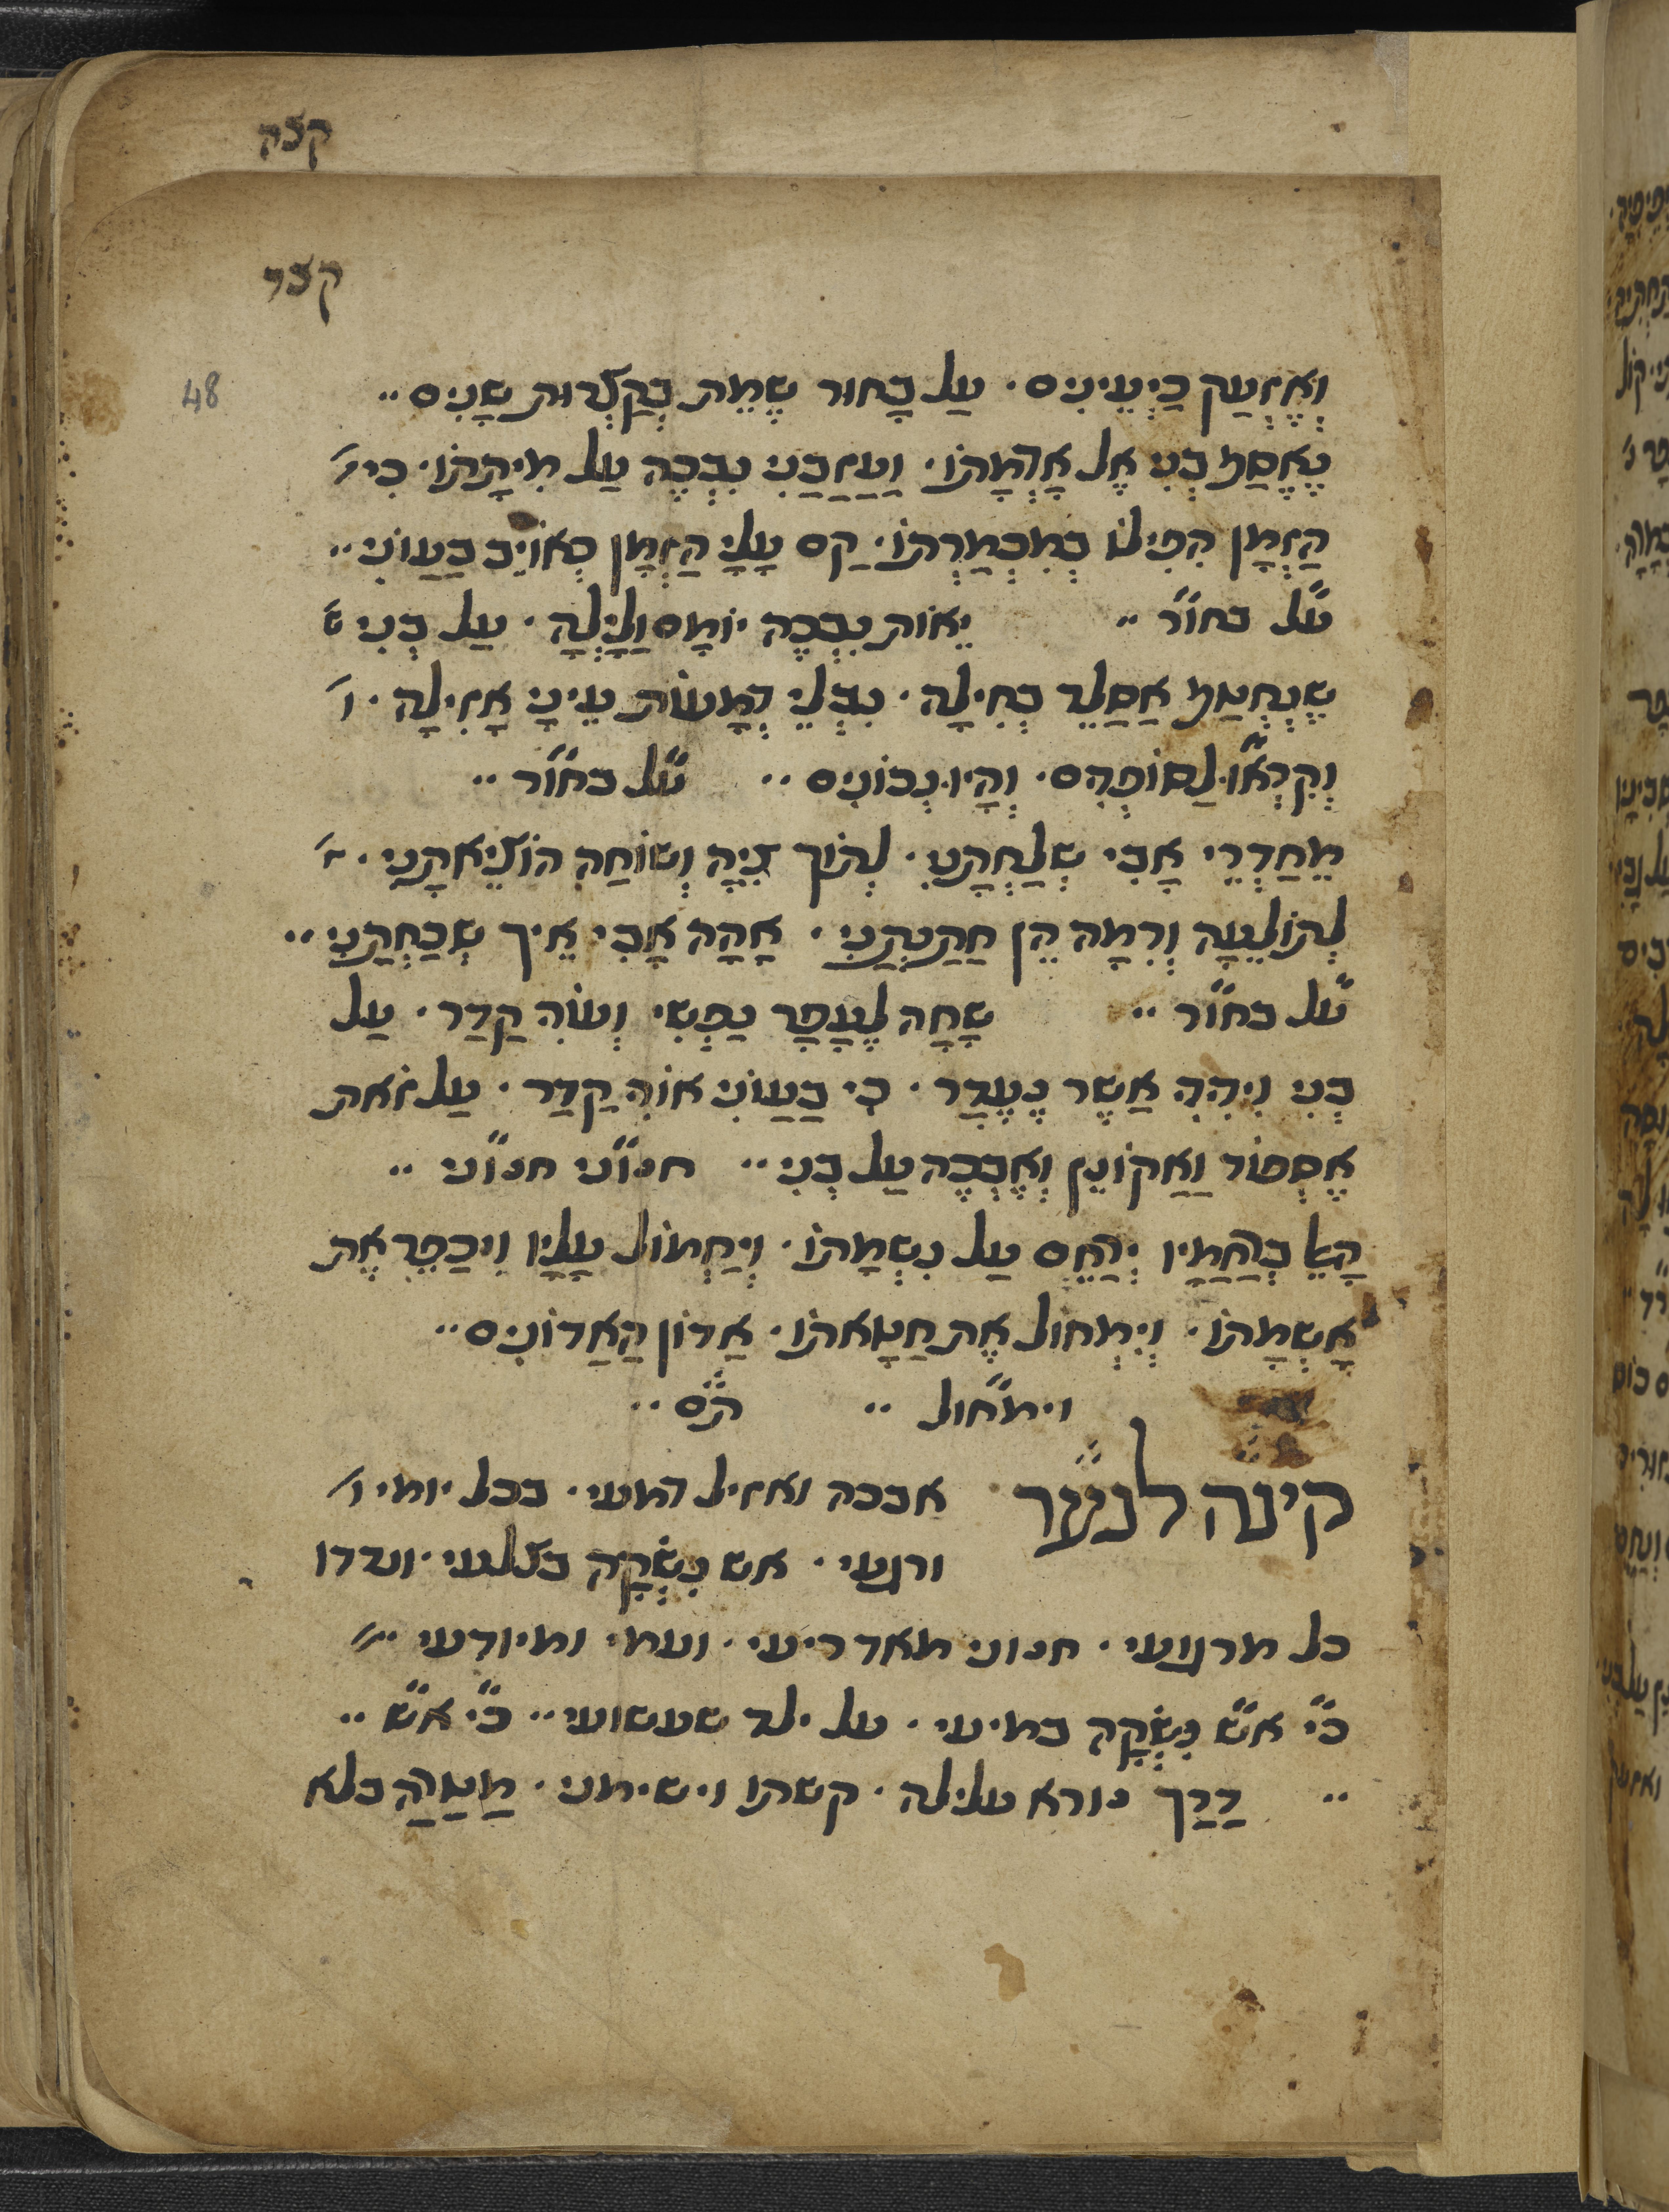 קצה
קצד
48
וְאֶזְעַק כַּיְעֵינִים · עַל בָּחוּר שֶׁמֵּת בְּקַצְרוּת שָׁנִים ··
נֶאֱסַף בְּנִי אֶל אַדְמָתוֹ · וַעֲזָבַנִי נִבְכֶּה עַל מִיתָתוֹ · כִּי
הַזְּמָן הִפִּילוֹ בְּמִכְמַרְתּוֹ · קַם עָלַי הַזְּמָן כְּאוֹיֵב בַּעֲוֹנִי ··
על בחור ·· יֵאוֹת נִבְכֶּה יוֹמָם וְלַיְלָה · עַל בְּנִי
שֶׁנֶּחְטַף אֲסַפֵּר בְּחִילָה · נִבְלֵי דְמָעוֹת עֵינַי אַזִּילָה · ו
וְקִרְאוּ לַסּוֹפְדִים · וְהָיוּ נְכוֹנִים ·· על בחור ··
מֵחַדְרֵי אָבִי שְׁלַחְתָּנִי · לְתוֹךְ צִיָּה וְשׁוּחָה הוֹצֵיאתָנִי ·
לְתוֹלֵעָה וְרִמָּה הֵן נְתַתָּנִי · אֲהָהּ אָבִי אֵיךְ שְׁכַחְתָּנִי ··
על בחור ·· שָׁחָה לֶעָפָר נַפְשִׁי וְעוֹר קָדַר · עַל
בְּנִי וִיהִה אֲשֶׁר נֶעֱדַר · כִּי בַּעֲוֹנִי אוֹר קָדַר · עַל זֹאת
אֶסְפּוֹד וַאֲקוֹנֵן וְאֶבְכֶּה עַל בְּנִי ·· חנוני חנוני ··
הָאֵל בְּרַחֲמָיו יְחַיֵּס עַל נִשְׁמָתוֹ · וְיַחְמוֹל עָלָיו וִיכַפֵּר אֶת
אַשְׁמָתוֹ · וְיִמְחוֹל אֶת חַטָּאתוֹ · אֲדוֹן הָאֲדוֹנִים ··
וימחול ·· תם ··
קינה לנער אבכה ואזיל דמעי · בכל יומי ו
ורגעי · אש נִשְּׂקָה בצלעי · ונדדו
כל מרגועי · חנוני מאד ריעי · ועמי ומיודעי
כי אש נִשְּׂקָה במיעי · על ילד שעשועי ·· כי אש ··
·· דָּרַךְ נורא עלילה · קשתו וישימני · מַטָּרָה כלא